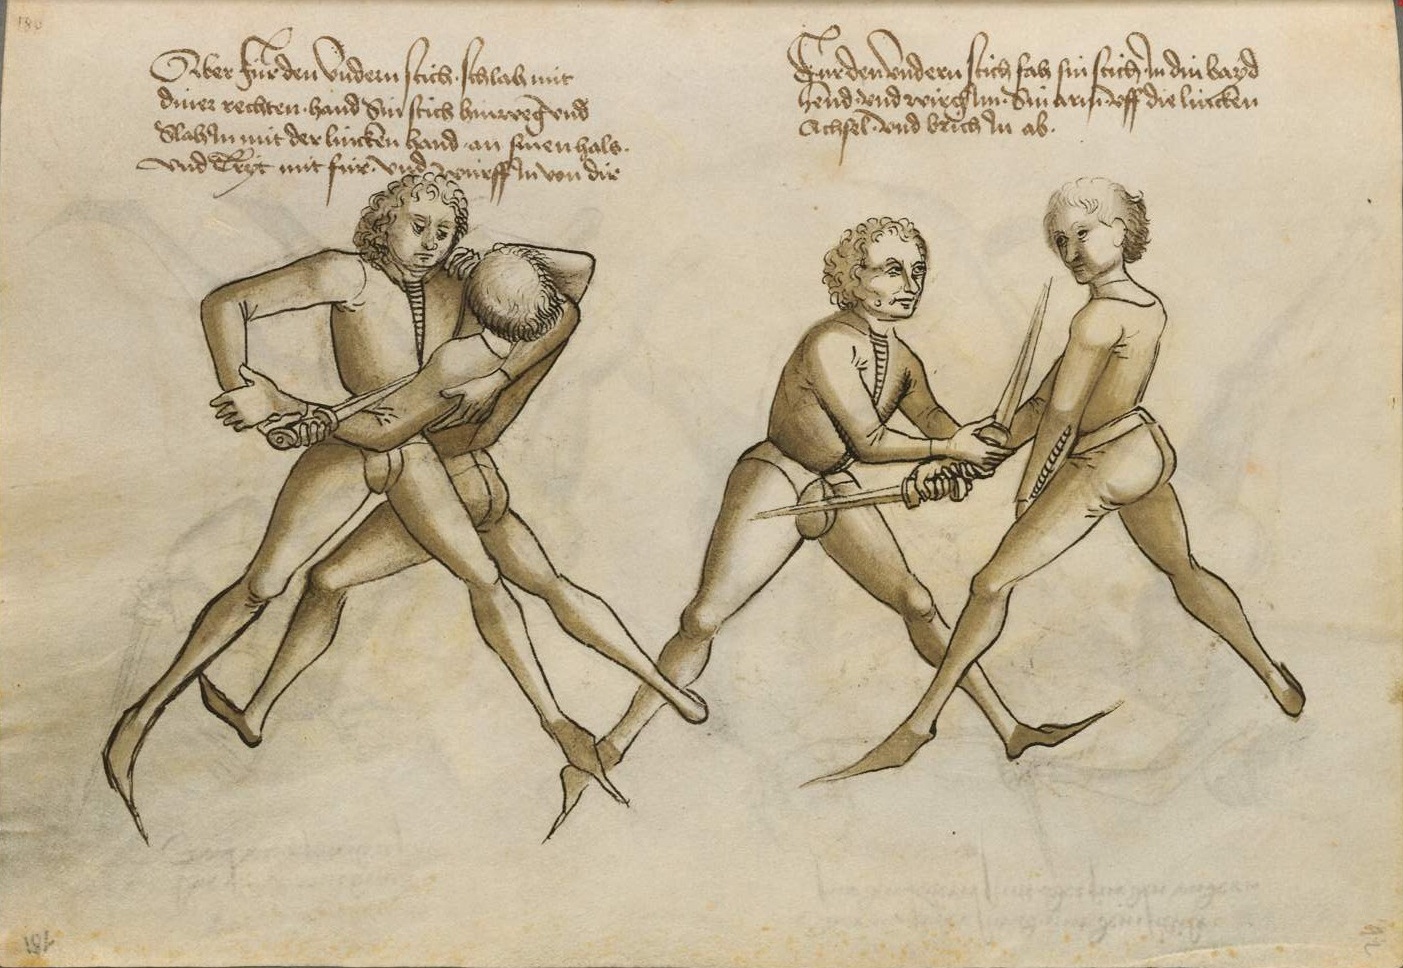 180
Aber für den Undern stich · schlah mit
diner rechten · hand Sin stich hinweg und
Slah In mit der lincken hand · an sinen hals ·
und Tryt mit für · und würff In von dir
Für den undern stich fah sin stich In din bayd
hend · und würg Im · Sin arm · uff die lincken
Achsel · und brich In ab ·
181